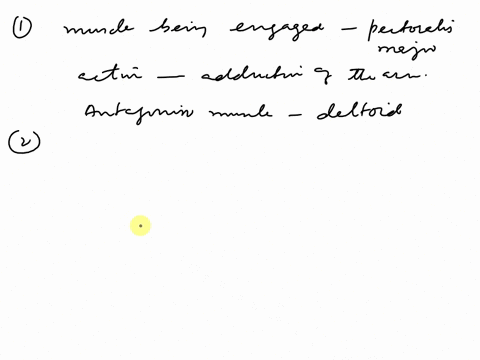 ① muscle being engaged – pectoralis
major
action — adduction of the arm.
Antagonist muscle – deltoid
②